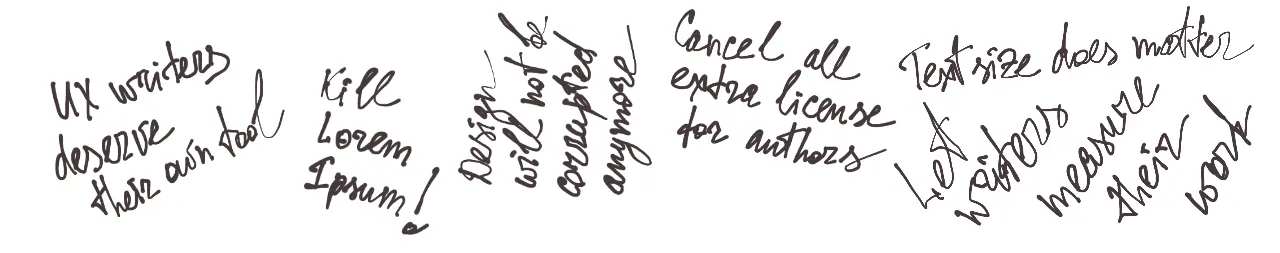 UX writers
deserve
their own tool
Kill
Lorem
Ipsum!
Design
will not be
corrupted
anymore
Cancel all
extra license
for authors
Text size does matter
Let
writers
measure
their
work